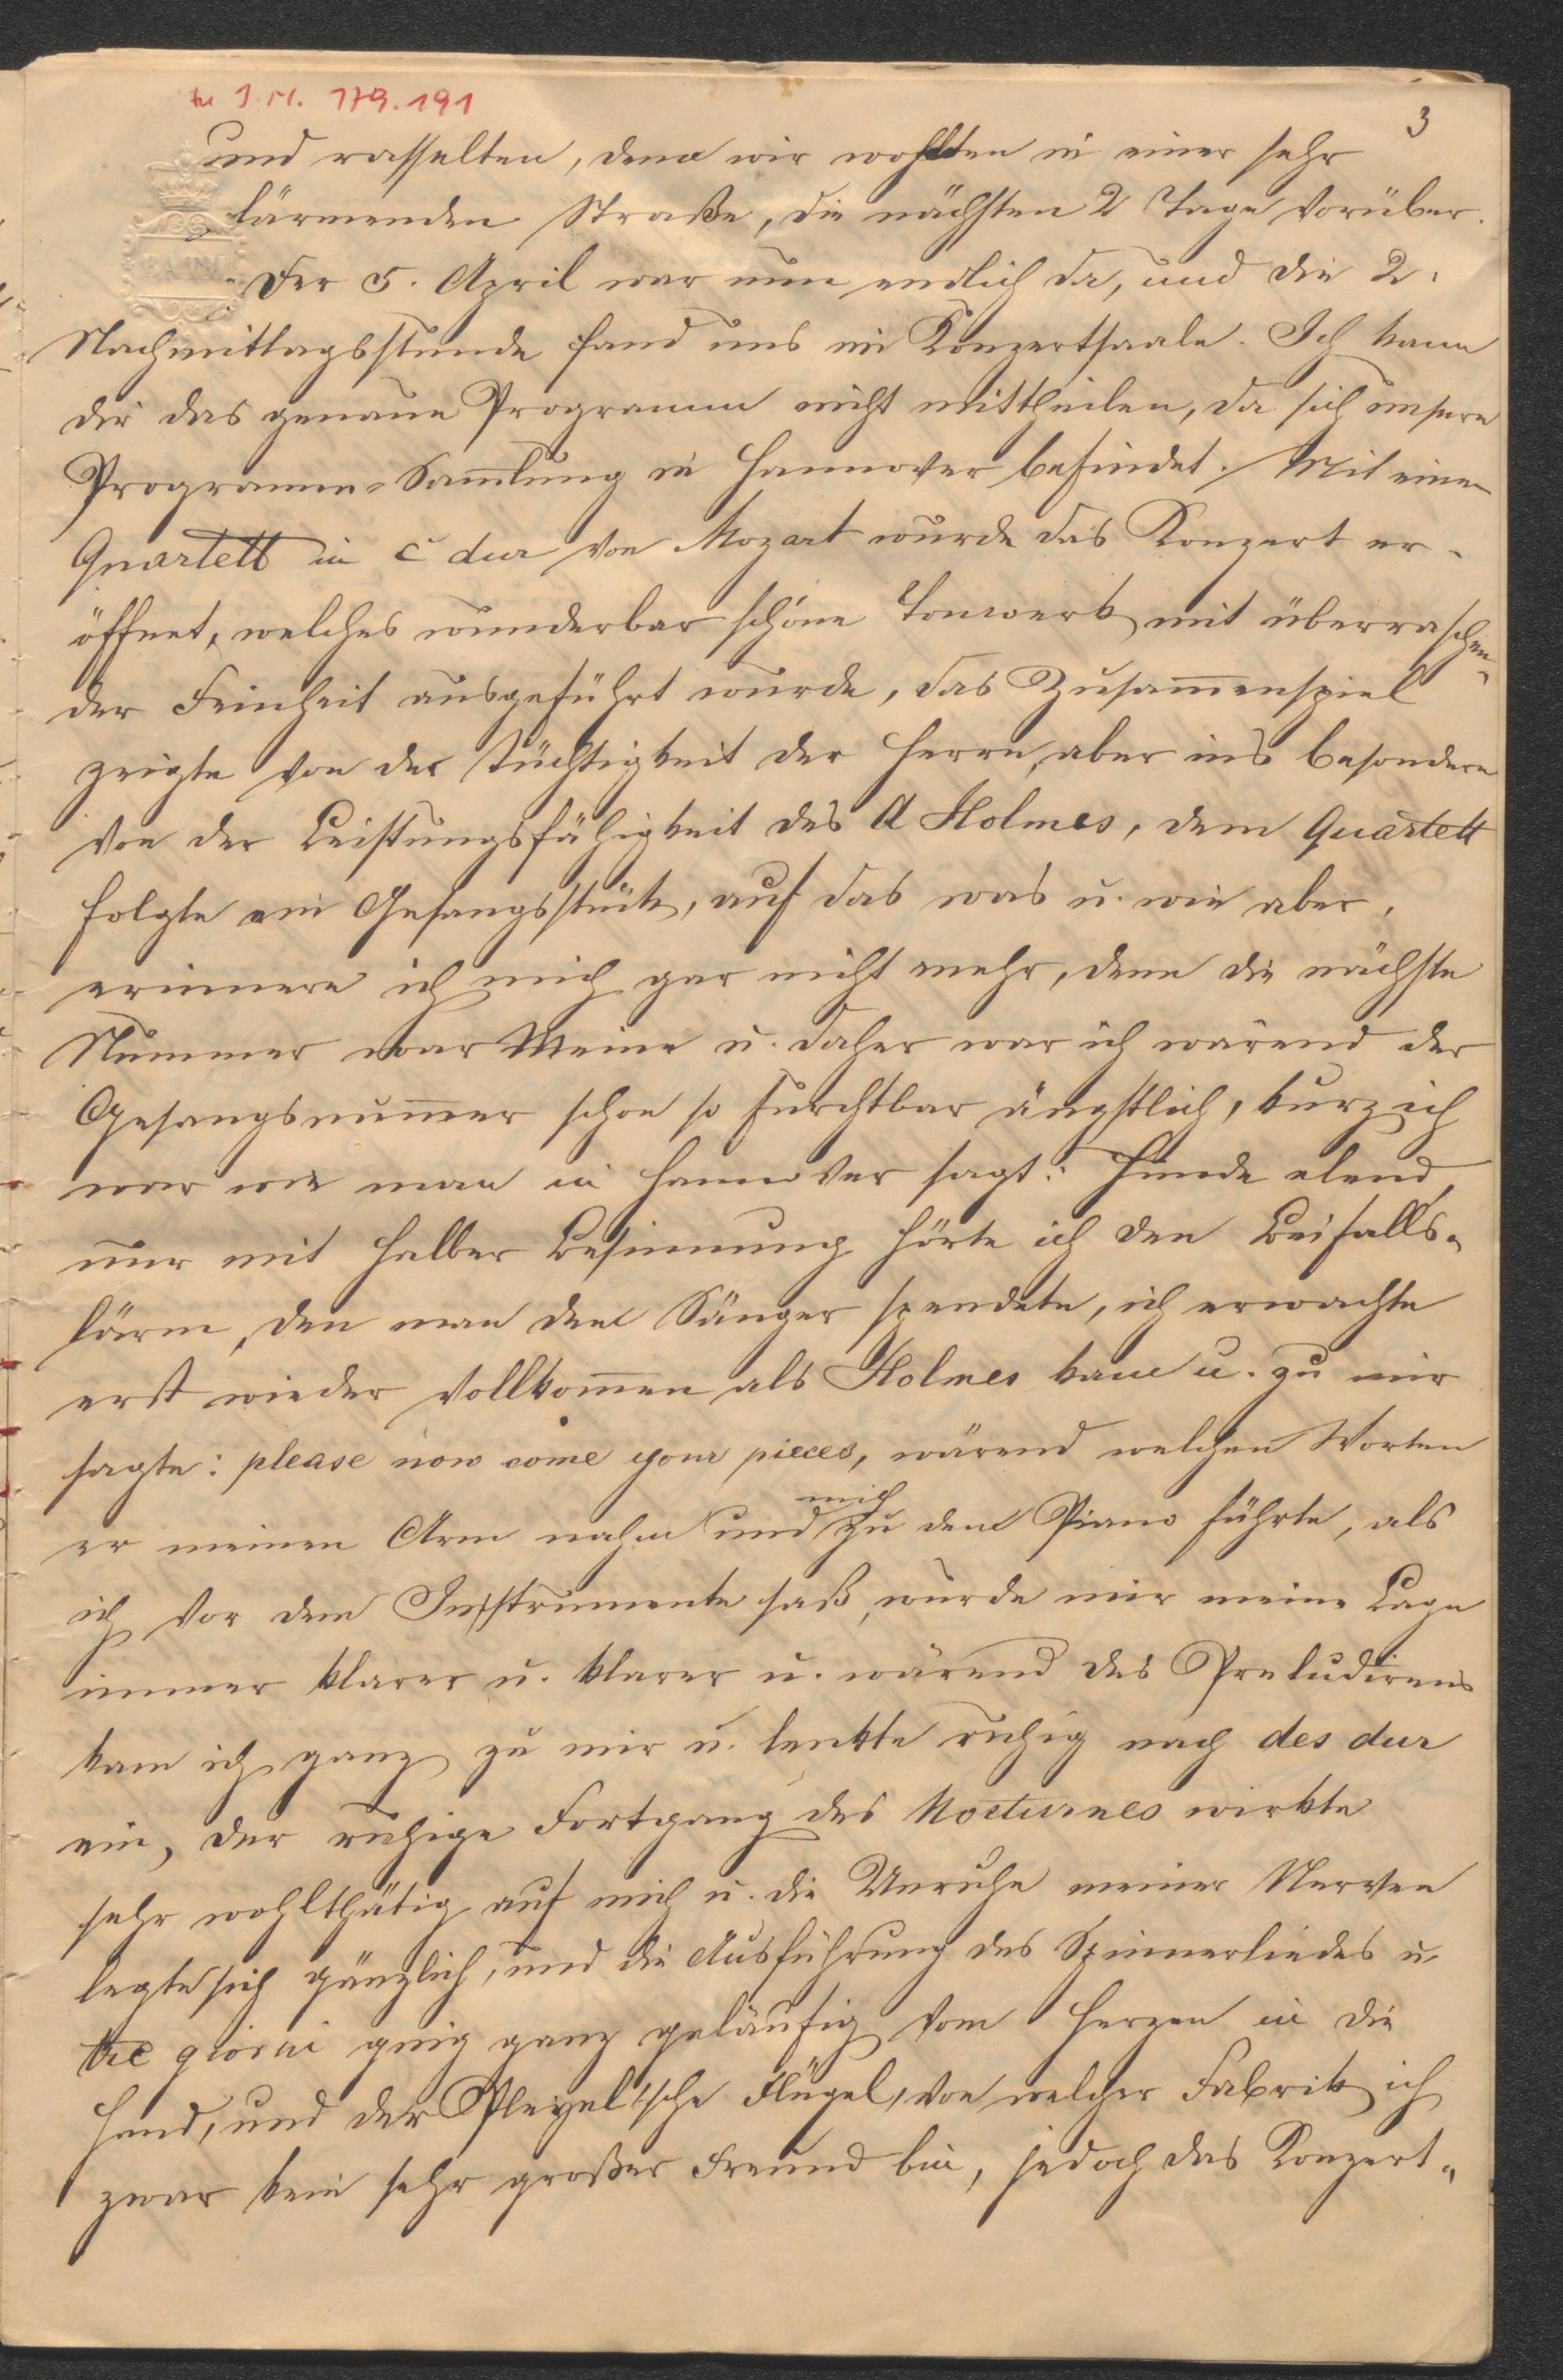 zu I.N. 179.191
3
und rasselten, denn wir wohnten in einer sehr
lärmenden Straße, die nächsten 2 Tage vorüber.
BATH
Der 5. April war nun endlich da, und die 2.
Nachmittagsstunde fand uns im Konzertsaale. Ich kann
dir das genaue Programm nicht mittheilen, da sich unsere
Programm-Sam̄lung in Hannover befindet. Mit einem
Quartett in c dur von Mozart wurde das Konzert er-
öffnet, welches wunderbar schöne Tonwerk mit überraschen-
der Feinheit ausgeführt wurde, das Zusam̄enspiel
zeigte von der Tüchtigkeit der Herrn, aber ins besondere
von der Leistungsfähigkeit des A Holmes, dem Quartett
folgte ein Gesangsstück, auf das was u. wie aber,
erinnere ich mich gar nicht mehr, denn die nächste
Nummer war Meine u. daher war ich wärend der
Gesangsnum̄er schon so furchtbar ängstlich, kurz ich
war wie man in Hannover sagt: Hunde elend,
nur mit halber Besinnung hörte ich den Beifalls-
lärm, den man dem Sänger spendete, ich erwachte
erst wieder vollkom̄en als Holmes kam u. zu mir
sagte: please now come your pieces, wärend welchen Worten
er meinen Arm nahm und mich zu dem Piano führte, als
ich vor dem Instrumente saß, wurde mir meine Lage
immer klarer u. klarer u. wärend des Preludirens
kam ich ganz zu mir u. lenkte ruhig nach des dur
ein, der ruhige Fortgang des Nocturnes wirkte
sehr wohlthätig auf mich u. die Unruhe meiner Nerven
legte sich gänzlich, und die Ausführung des Spinnerliedes u.
tre giorni ging ganz geläufig vom Herzen in die
Hand, und der Pleyel'sche Flügel, von welcher Fabrik ich
zwar kein sehr großer Freund bin, jedoch das Konzert-